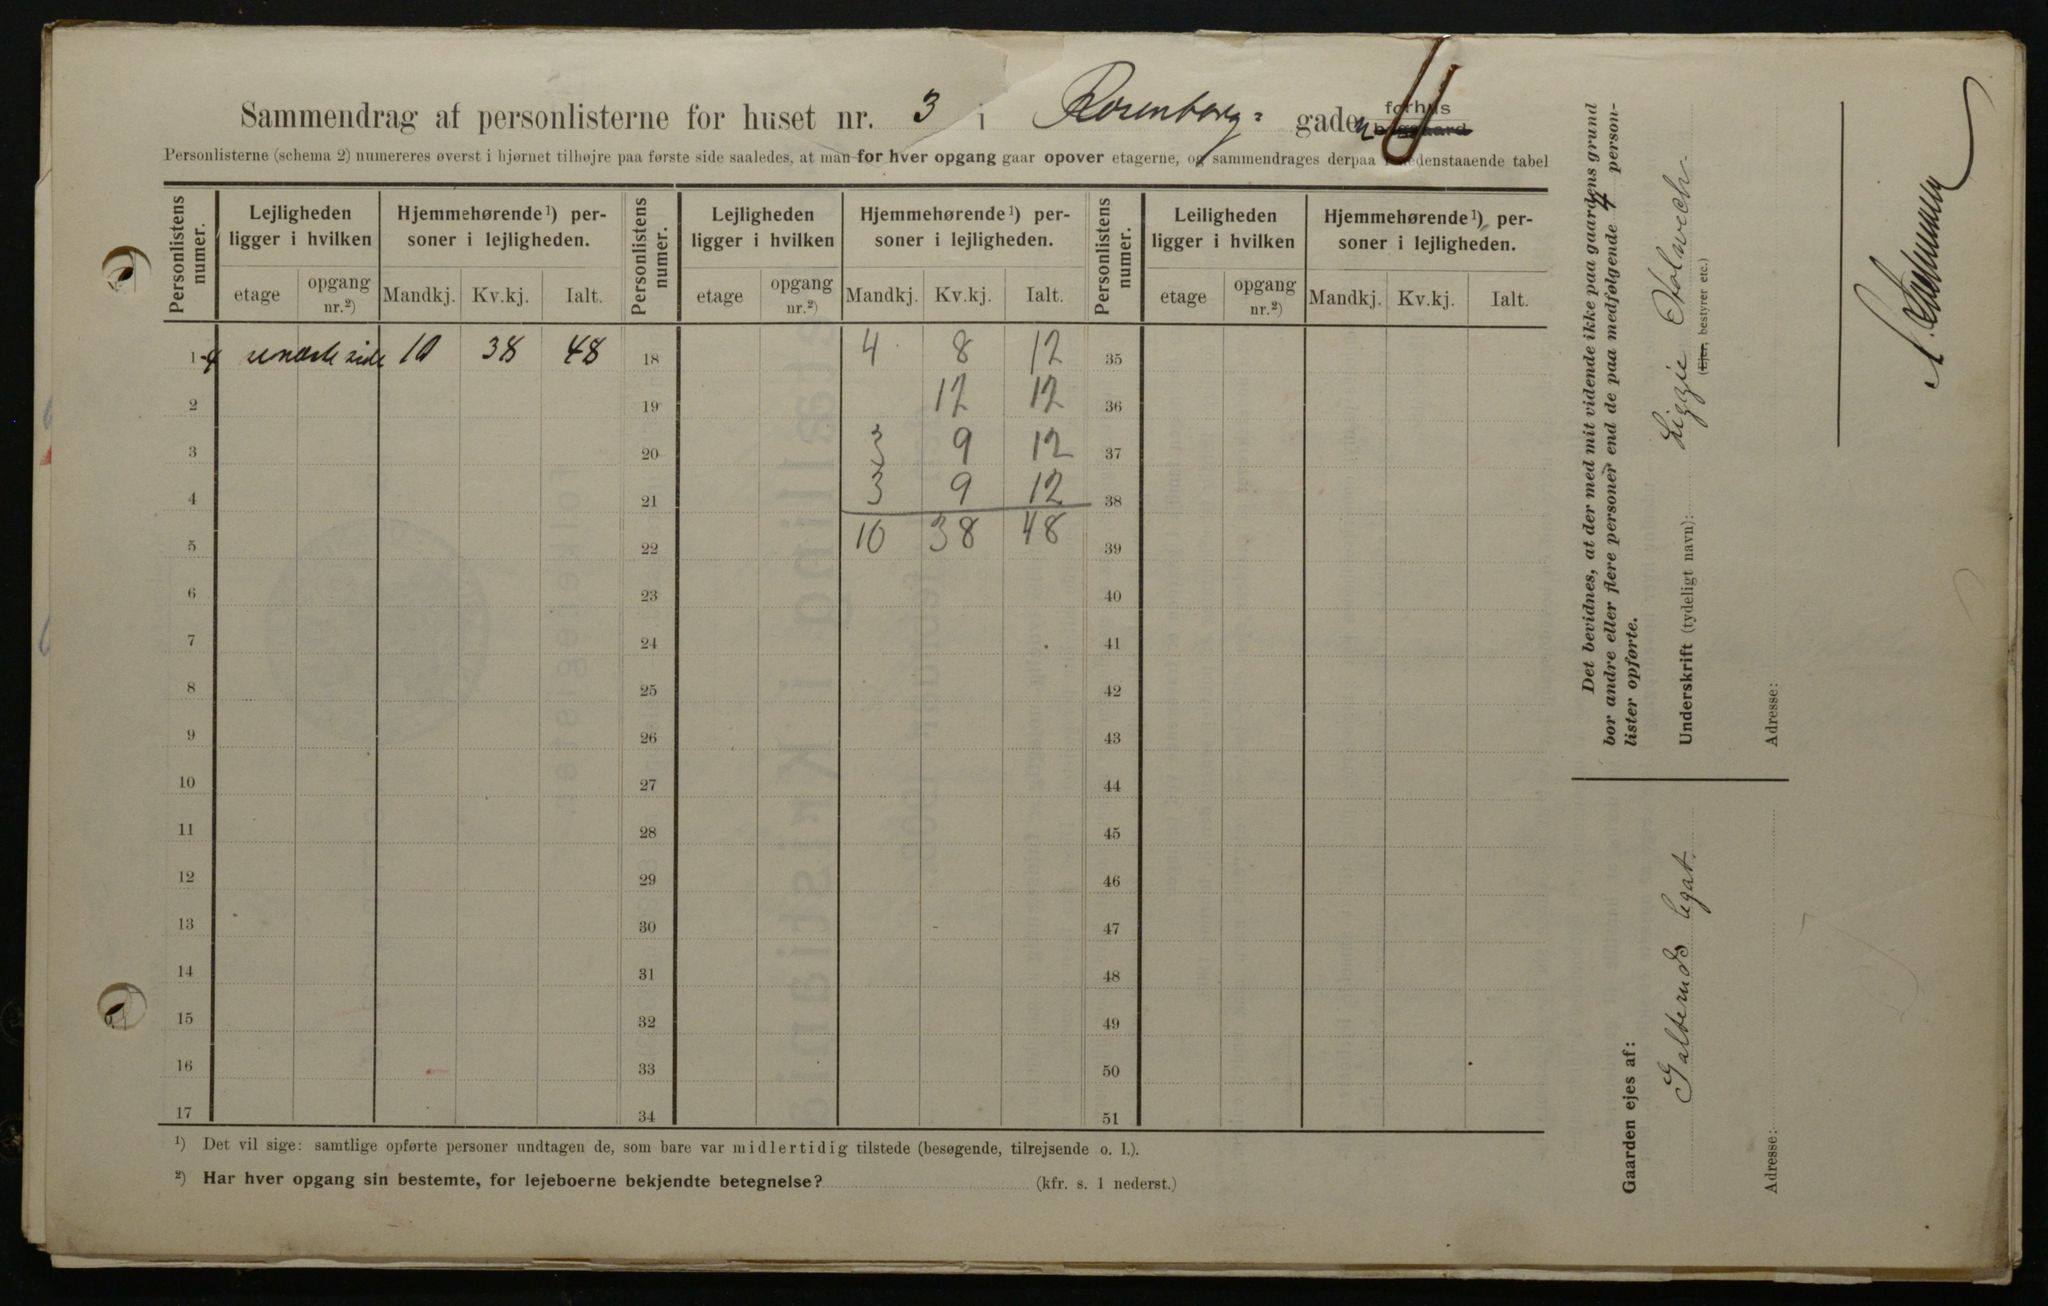 Sammendrag af personlisterne for huset nr. 3 i Rosenborg- gaden forhus bagaard
Personlisterne (schema 2) numereres øverst i hjørnet tilhøjre paa første side saaledes, at man for hver opgang gaar opover etagerne, og sammendrages derpaa i nedenstaaende tabel
Personlistens numer. Lejligheden ligger i hvilken Hjemmehørende¹) personer i lejligheden. Personlistens numer. Lejligheden ligger i hvilken Hjemmehørende¹) personer i lejligheden. Personlistens numer. Leiligheden ligger i hvilken Hjemmehørende¹) personer i lejligheden.
etage opgang nr.²) Mandkj. Kv.kj. Ialt. etage opgang nr.²) Mandkj. Kv.kj. Ialt. etage opgang nr.²) Mandkj. Kv.kj. Ialt.
1-4 se næste side 10 38 48 18 4 8 12 35
2 19 12 12 36
3 20 3 9 12 37
4 21 3 9 12 38
5 22 10 38 48 39
6 23 40
7 24 41
8 25 42
9 26 43
10 27 44
11 28 45
12 29 46
13 30 47
14 31 48
15 32 49
16 33 50
17 34 51
¹) Det vil sige: samtlige opførte personer undtagen de, som bare var midlertidig tilstede (besøgende, tilrejsende o. l.).
²) Har hver opgang sin bestemte, for lejeboerne bekjendte betegnelse? (kfr. s. 1 nederst.)
Det bevidnes, at der med mit vidende ikke paa gaardens grund
bor andre eller flere personer end de paa medfølgende 4 person-
lister opførte.
Underskrift (tydeligt navn): Lizzie
(Ejer, bestyrer etc.)
Adresse:
Gaarden ejes af:
legat.
Adresse: